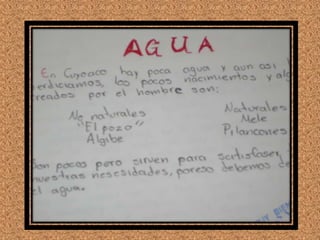 AGUA
En Cuyoaco hay poca agua y aun asi
perdiciamos, los pocos nacimientos y
creados por el hombre son:
No naturales Naturales
"El pozo" Mele
Algibe Pilancones
Son pocos pero sirven para satisfaser
nuestras nesesidades, poreso debemos de
el agua.